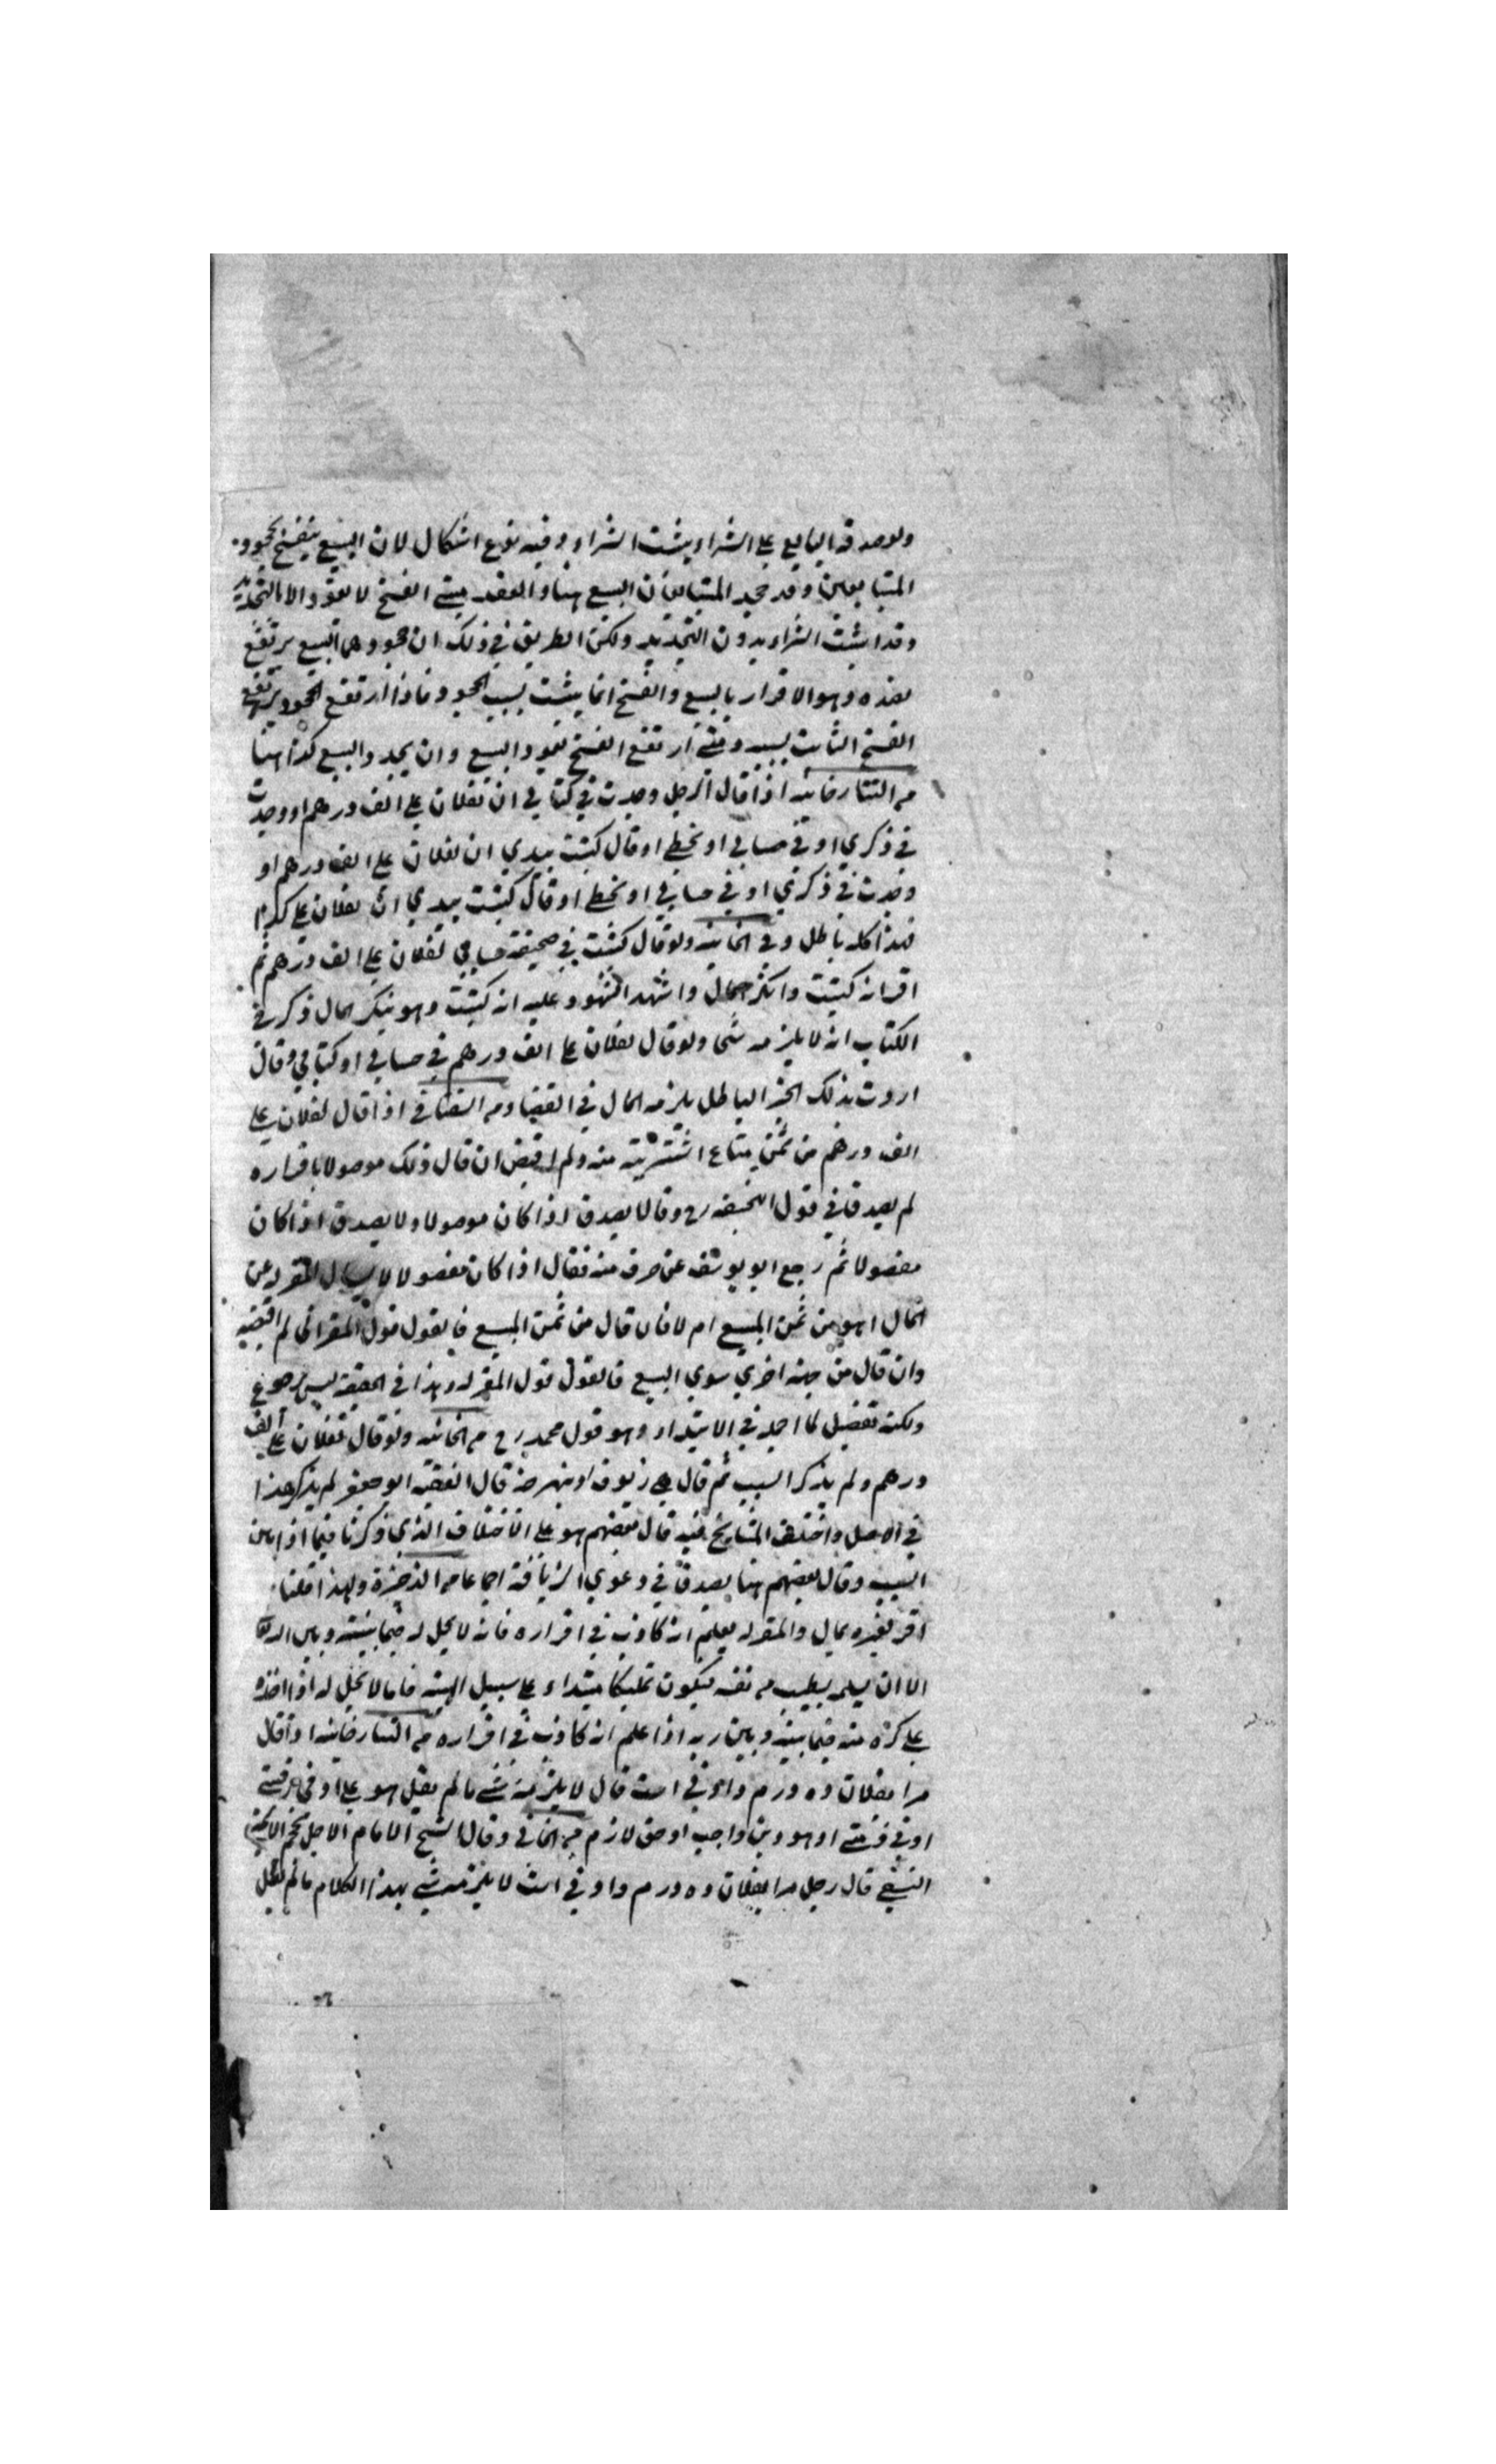 ولو صدقه البايع على الشراء يثبت الشراء وفيه نوع اشكال لان البيع ينفسخ بجحود
المتبايعين وقد جحد المتبايعان البيع هنا والعقد متى انفسخ لا يعود الا بالتجديد
وقد اثبت الشراء بدون التجديد ولكن الطريق في ذلك ان جحودهما البيع يرتفع
بضده وهو الاقرار بالبيع والفسخ انما يثبت بسبب الجحود فاذا ارتفع الجحود يرتفع
الفسخ الثابت بسببه ومتى ارتفع الفسخ يعود البيع وان يجدد البيع كذا هنا
من التتارخانيه اذا قال الرجل وجدت في كتابي ان لفلان على الف درهم او وجدت
في ذكري او في حسابي او بخطي او قال كتبت بيدي ان لفلان على الف درهم او
وجدت في ذكري او في حسابي او بخطي او قال كتبت بيدي ان لفلان على كذا
فهذا كله باطل وفي الخانيه ولو قال كتبت في صحيفة حسابي لفلان على الف درهم ثم
اقر انه كتبت وانكر المال واشهد الشهود عليه انه كتبت وهو ينكر المال ذكر في
الكتاب انه لا يلزمه شى ولو قال لفلان على الف درهم في حسابي او كتابي وقال
اردت بذلك الخبر الباطل يلزمه المال في القضا ومن السغناقي اذا قال لفلان على
الف درهم من ثمن متاع اشتريته منه ولم اقبض ان قال ذلك موصولا باقراره
لم يصدق في قول ابي حنيفه رح وقالا يصدق اذا كان موصولا ولا يصدق اذا كان
مفصولا ثم رجع ابو يوسف عن حرف منه فقال اذا كان مفصولا يسال المقر له عن
المال اهو من ثمن المبيع ام لا فان قال من ثمن المبيع فالقول قول المقر اني لم اقبضه
وان قال من جهة اخرى سوى البيع فالقول قول المقر له وهذا في الحقيقة ليس برجوع
ولكنه تفصيل لما اجمله في الابتداء وهو قول محمد رح من الخانيه ولو قال لفلان على الف
درهم ولم يذكر السبب ثم قال هي زيوف او نبهرجة قال الفقيه ابو جعفر لم يذكر هذا
في الاصل واختلف المشايخ فيه قال بعضهم هو على الاختلاف الذي ذكرنا فيما اذا بين
السبب وقال بعضهم هنا يصدق في دعوى الزيافة اجماعا من الذخيرة ولهذا قلنا
اقر لغيره بمال والمقر له يعلم انه كاذب في اقراره فانه لا يحل له فيما بينه وبين الله
الا ان يسلمه بطيب من نفسه فيكون تمليكا مبتداء على سبيل الهبة فاما لا يحل له اذا اخذه
على كره منه فيما بينه وبين ربه اذا علم انه كاذب في اقراره من التتارخانيه اذا قال
مرا بفلان ده درم دادني است قال لا يلزمه شي ما لم يقل هو علي او في عرفتي
او في ذمتي او هو دين واجب او حق لازم من الخاني وقال الشيخ الامام الاجل نجم الائمة
النسفي قال رجل مرا بفلان ده درم دادني است لا يلزمه شي بهذا الكلام ما لم يقل